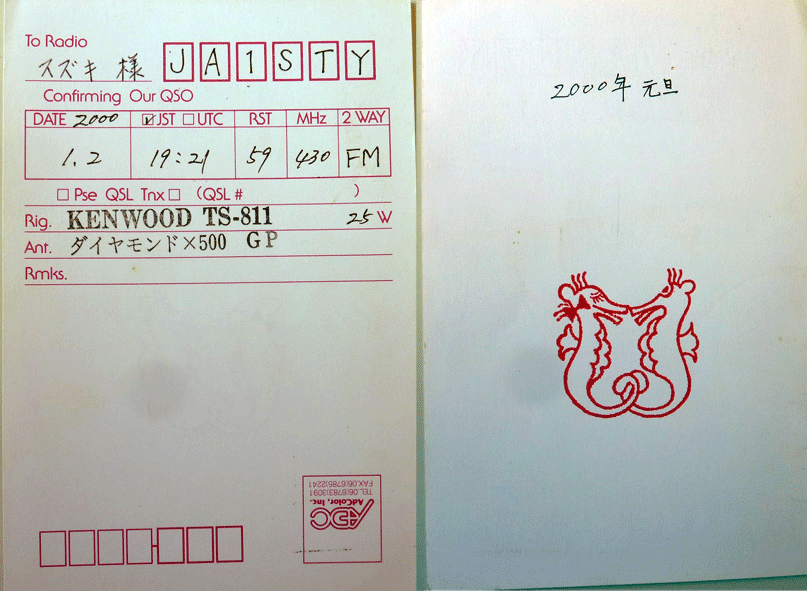 To Radio
スズキ 様 JA1STY
Confirming Our QSO
DATE 2000 ☑JST □UTC RST MHz 2 WAY
1.2 19:21 59 430 FM
□ Pse QSL Tnx □ (QSL # )
Rig. KENWOOD TS-811 25 W
Ant. ダイヤモンド×500 GP
Rmks.
FAX.06(6785)2241
TEL.06(6783)3091
AdColor, Inc.
ADC
2000年 元旦